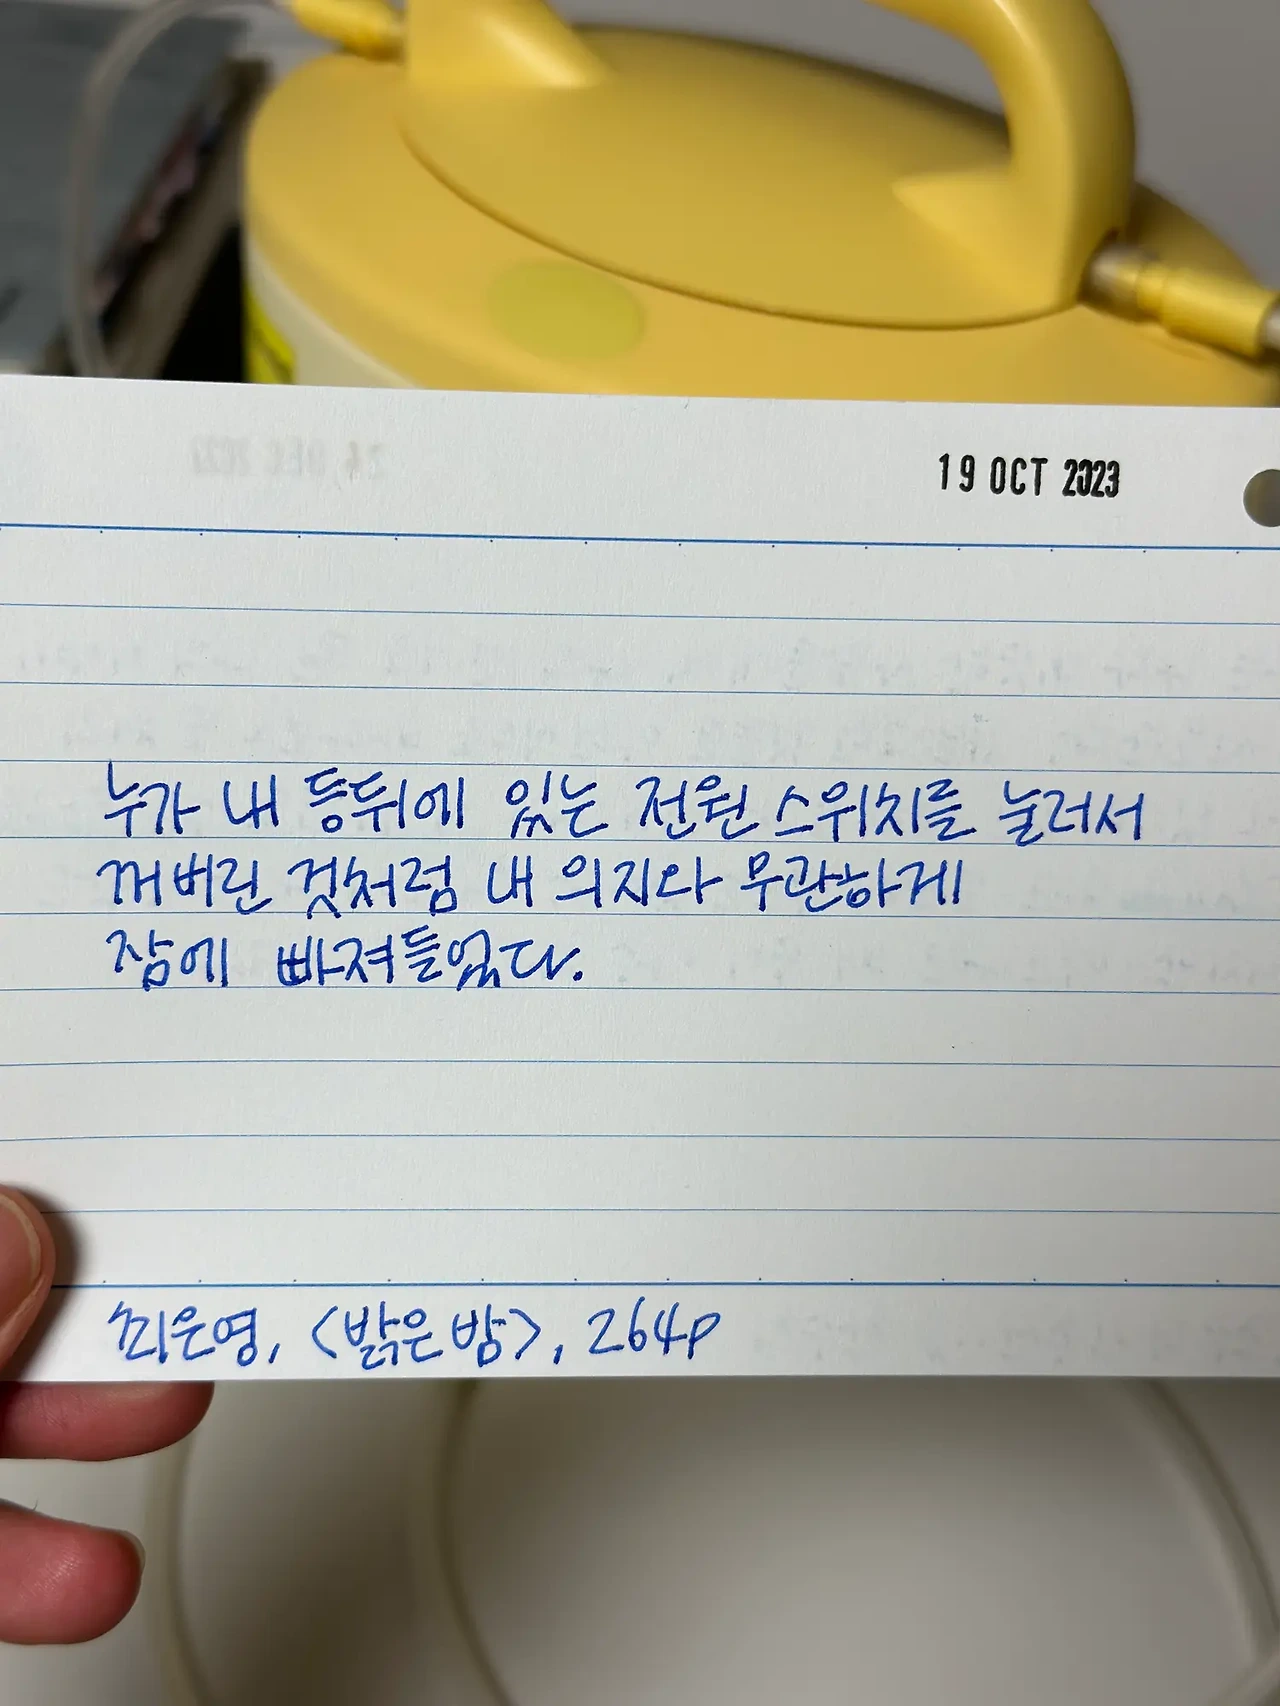 19 OCT 2023
누가 내 등뒤에 있는 전원 스위치를 눌러서
꺼버린 것처럼 내 의지와 무관하게
잠에 빠져들었다.
최은영, <밝은 밤>, 264p